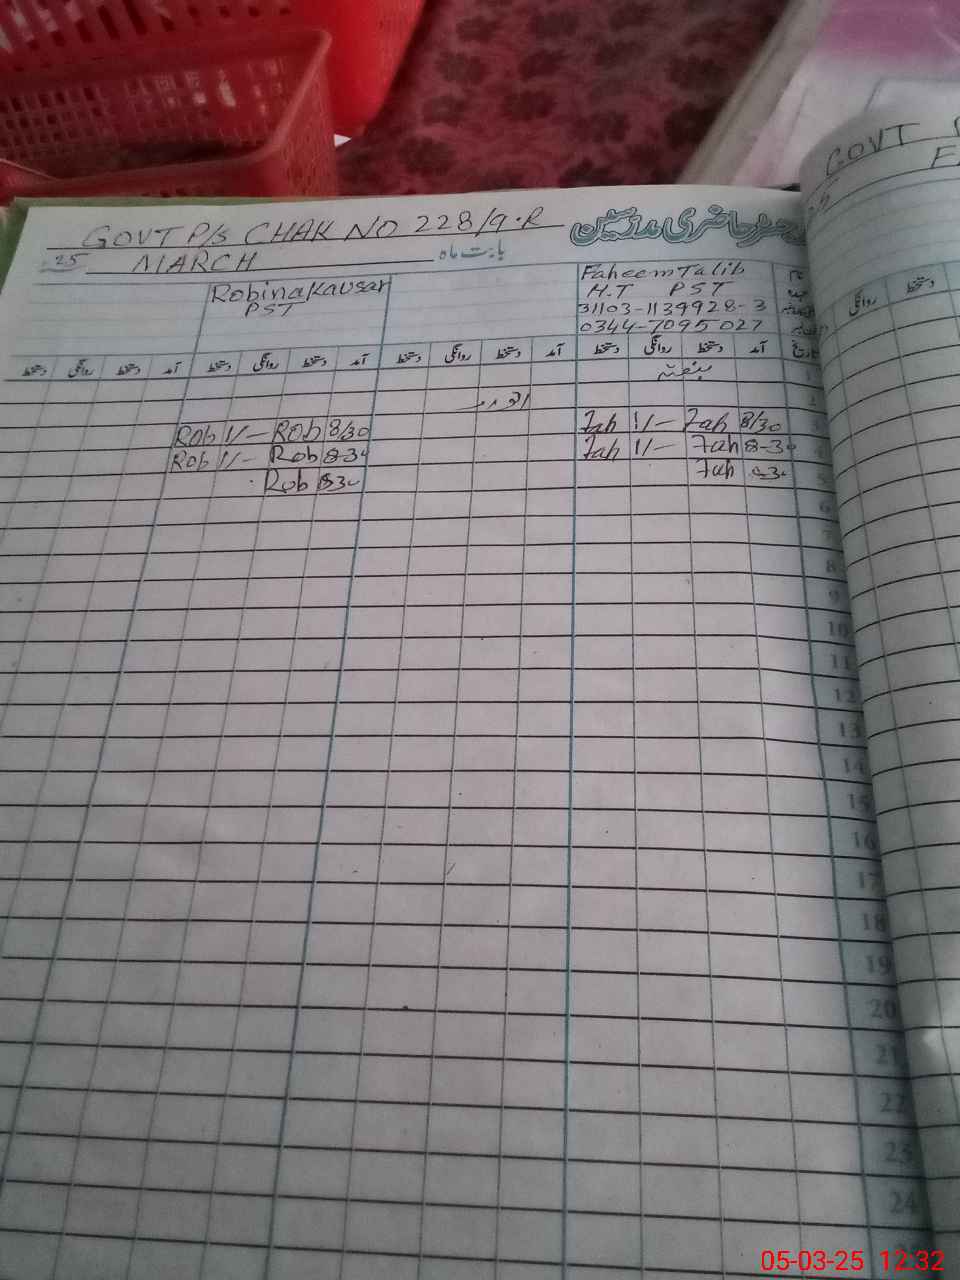 GOVT P/S CHAK NO 228/9.R
حاضری مدرسین
25 MARCH بابت ماہ
GOVT
Robina Kausar
PST
Faheem Talib
H.T PST
31103-1139928-3
0344-7095027
دستخط روانگی دستخط آمد دستخط روانگی دستخط آمد دستخط روانگی دستخط آمد دستخط روانگی دستخط آمد تاریخ
روانگی دستخط
1 ہفتہ
2 اتوار
Rob 1/- Rob 8/30 Fah 1/- Fah 8/30 3
Rob 1/- Rob 8-30 Fah 1/- Fah 8-30 4
Rob 8 30 Fah 8 30 5
6
7
8
9
10
11
12
13
14
15
16
17
18
19
20
21
22
23
24
05-03-25 12:32